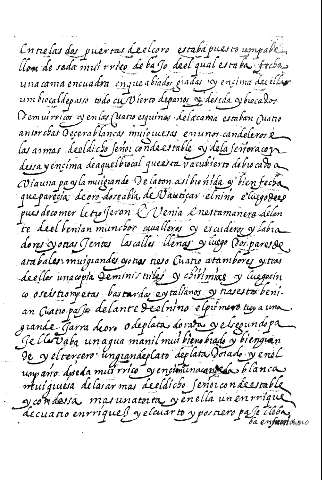 Entre las dos puertas de el coro estaba puesto un pabe
llon de seda mui rrico debajo de el qual estaba fecha
una cama en cuadra en que abia dos gradas y encima de ellas
un bocal de paso todo cubierto de panos y de seda y brocados
mui rricos y en las cuatro esquinas de la cama estaban cuatro
antorchas de cera blancas mui gruesas en unos candeleros
las armas de el dicho señor condestable y de la señora con
desa y encima de aquel bocal questaba cubierto de brocado
una pila mui grande de laton asi brunida y bien fecha
que parecia de oro do se abia de bautizar el nino e luego des
pues de comer
te de el benian muchos caualleros y escuderos y labra
dores y otras gentes las calles llenas y luego dos pares de
atabales mui grandes y otros tres o cuatro atambores y tras
de ellos una copia de ministriles y chirimias y luego cin
co o seis trompetas bastardas e ytalianas y tras esto beni
an cuatro pajes delante de el nino el primero traya una
grande jarra de oro o de plata dorada y el segundo pa
je llebaba un aguamanil mui bien obrado y bien gran
de y el tercero un gran de plato de plata dorado y en el
un paño de seda mui rrico y encima una bela blanca
mui gruesa de las armas de el dicho señor condestable
y condessa mas una torta y en ella un enrrique
de cuatro enrriques y el cuarto y postrero paje lleba
ba en